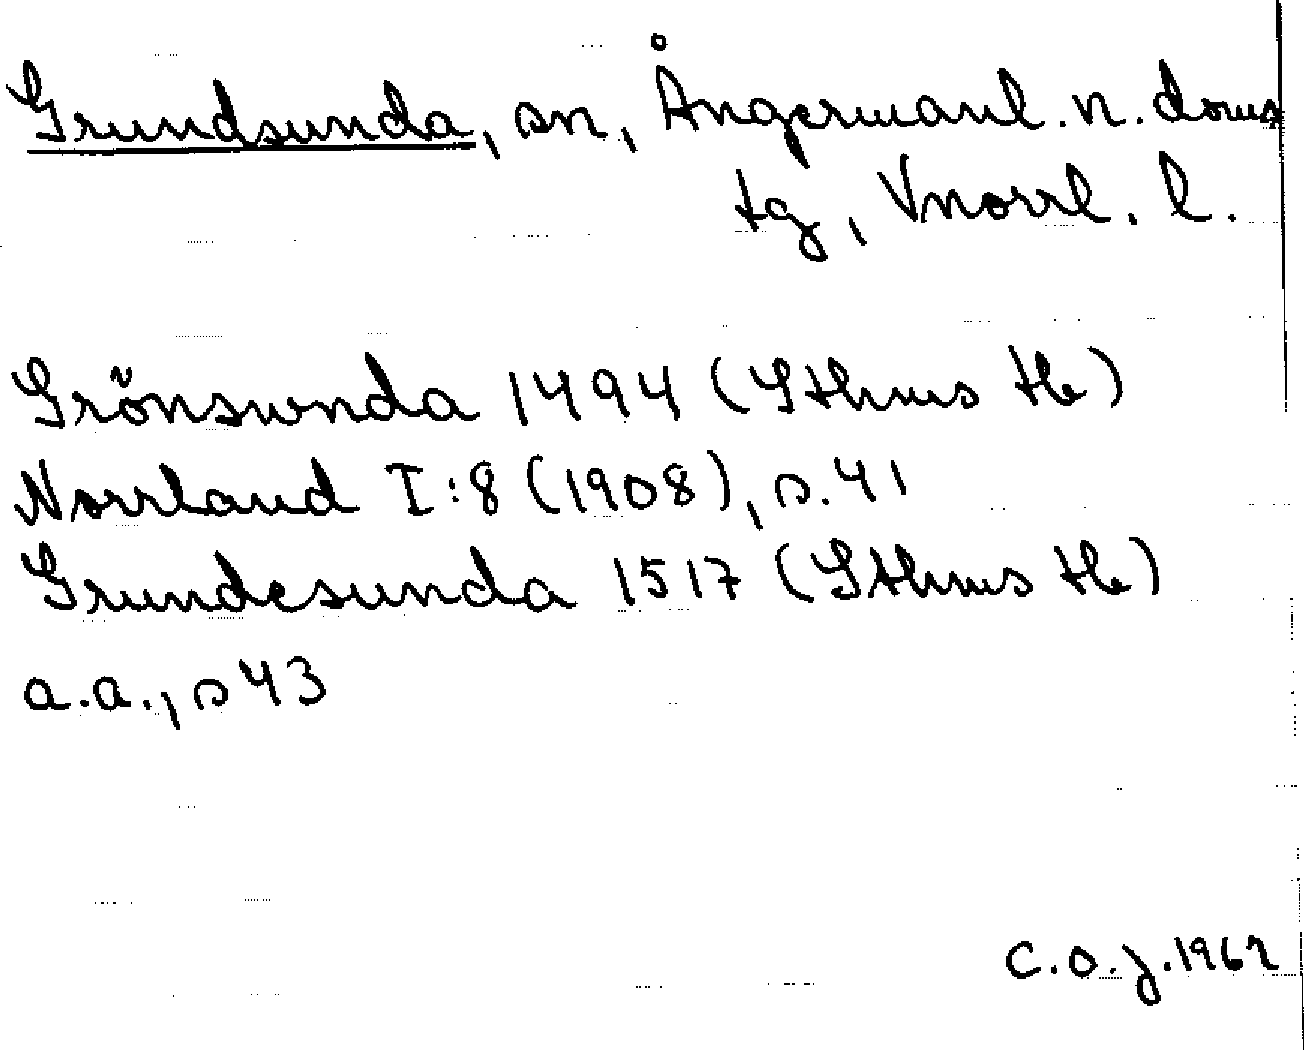 Grundsunda, sn, Ångermanl. n. doms
tg, Vnorrl. l.
Grönsunda 1494 (Sthms tb)
Norrland I:8 (1908), s. 41
Grundesunda 1517 (Sthms tb)
a.a., s 43
C.O.J. 1962